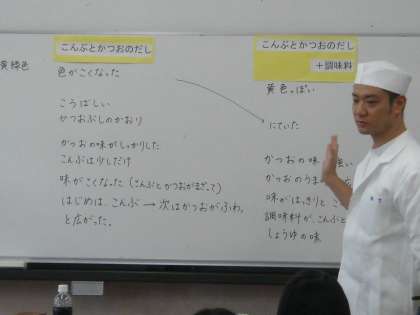 こんぶとかつおのだし
黄緑色
色がこくなった
こうばしい
かつおぶしのかおり
かつおの味がしっかりした
こんぶは少しだけ
味がこくなった(こんぶとかつおがまざって)
はじめは、こんぶ → 次はかつおがふわっ
と広がった。
こんぶとかつおのだし
+調味料
黄色っぽい
にていた
かつおの味
かつおのうま
味がはっきりと
調味料が、こんぶと
しょうゆの味